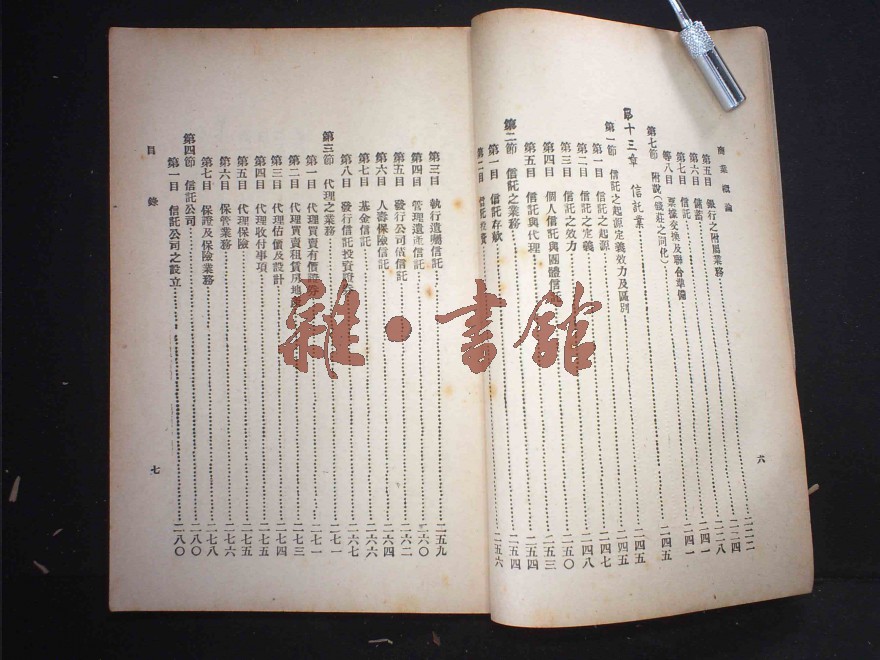 商業概論
第五目 銀行之附屬業務……二二二
第六目 儲蓄……二二四
第七目 信託……二二八
第八目 票據交換及聯合準備……二四一
第七節 附說(錢莊之同化)……二四一
第十三章 信託業……二四五
第一節 信託之起源定義效力及區別……二四五
第一目 信託之起源……二四五
第二目 信託之定義……二四七
第三目 信託之效力……二四八
第四目 個人信託與團體信託……二五〇
第五目 信託與代理……二五三
第二節 信託之業務……二五四
第一目 信託存款……二五四
第二目 信託投資……二五六
六
第三目 執行遺囑信託……二五九
第四目 管理遺產信託……二六〇
第五目 發行公司債信託……二六二
第六目 人壽保險信託……二六四
第七目 基金信託……二六六
第八目 發行信託投資證券……二六七
第三節 代理之業務……二七一
第一目 代理買賣有價證券……二七一
第二目 代理買賣租賃房地產……二七三
第三目 代理估價及設計……二七四
第四目 代理收付事項……二七五
第五目 代理保險……二七五
第六目 保管業務……二七六
第七目 保證及保險業務……二七八
第四節 信託公司……二八〇
第一目 信託公司之設立……二八〇
目錄
七
雜·書館